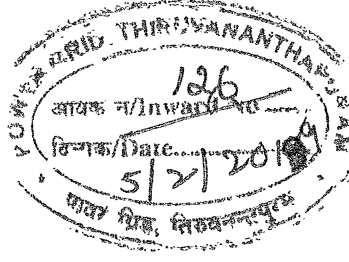 POWER GRID THIRUVANANTHAPURAM
126
आवक न/Inward No
दिनाक/Date
5/2/2019
पावर ग्रिड, तिरुवनन्तपुरम